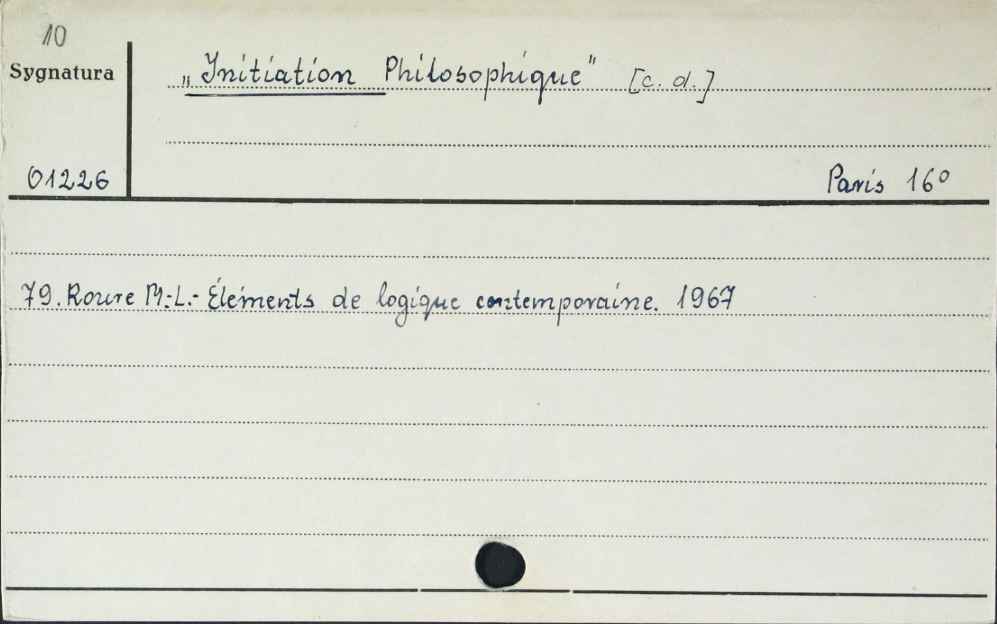 10
Sygnatura
„Initiation Philosophique" [c. d.]
01226
Paris 16º
79. Roure M.-L.- Éléments de logique contemporaine. 1967